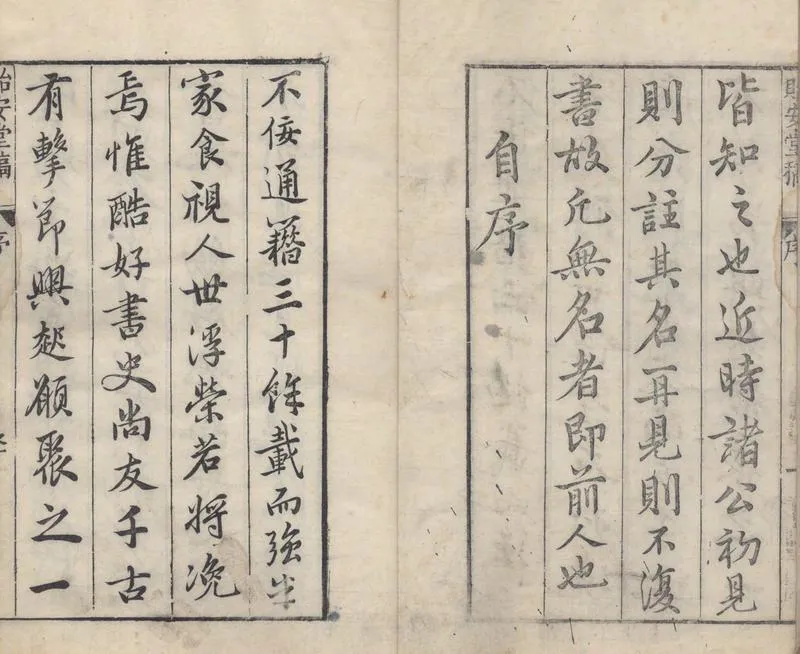 皆知之也近時諸公初見
則分註其名再見則不復
書故凡無名者即前人也
自序
不佞通籍三十餘載而強半
家食視人世浮榮若將浼
焉惟酷好書史尚友千古
有擊節興起願聚之一
安堂稿
序